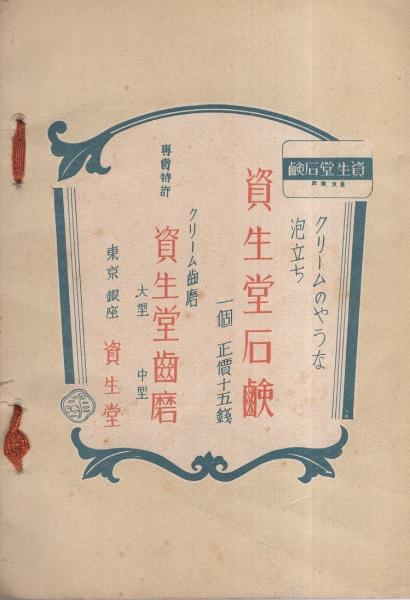 資生堂石鹸
東京銀座
クリームのやうな
泡立ち
資生堂石鹸
一個 正價十五錢
専賣特許
クリーム齒磨
資生堂齒磨
大型 中型
東京 銀座 資生堂